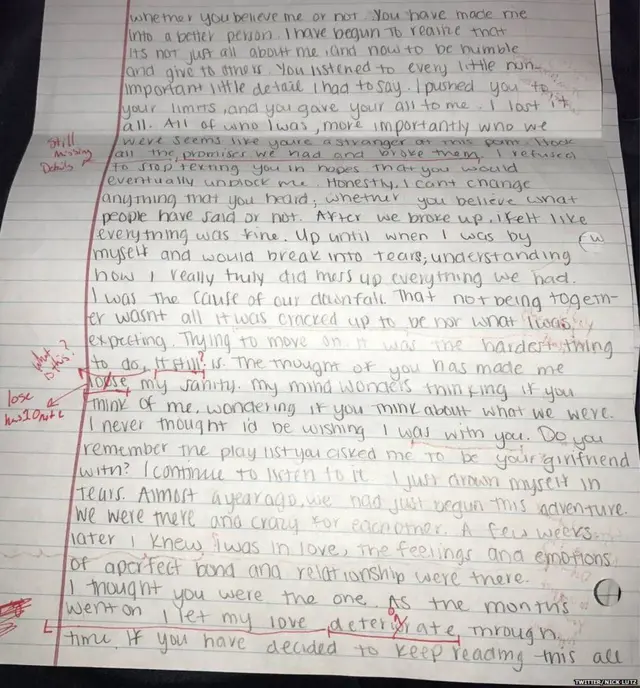 whether you believe me or not. You have made me
into a better person. I have begun to realize that
its not just all about me, and how to be humble
and give to others. You listened to every little nun-
important little detail I had to say. I pushed you to
your limits, and you gave your all to me. I lost it
all. All of who I was, more importantly who we
were seems like your a stranger at this point. I took
Still missing Details
all the promises we had and broke them. I refused
to stop texting you in hopes that you would
eventually unblock me. Honestly, I cant change
anything that you heard, whether you believe what
people have said or not. After we broke up, I felt like
everything was fine. Up until when I was by
myself and would break into tears, understanding
how I really truly did mess up everything we had.
I was the cause of our downfall. That not being togeth-
er wasnt all it was cracked up to be nor what I was
expecting. Trying to move on it was the hardest thing
what is this?
to do, it still? is. The thought of you has made me
loose my sanity. my mind wonders thinking if you
lose has 1 O not 2
think of me, wondering if you think about what we were.
I never thought i'd be wishing I was with you. Do you
remember the play list you asked me to be your girlfriend
with? I continue to listen to it. I just drown myself in
tears. Almost a year ago, we had just begun this adventure.
We were there and crazy for eachother. A few weeks
later I knew I was in love, the feelings and emotions
of a perfect bond and relationship were there.
I thought you were the one. As the months
went on I let my love deteriorate through
time. If you have decided to keep reading this all
TWITTER/NICK LUTZ